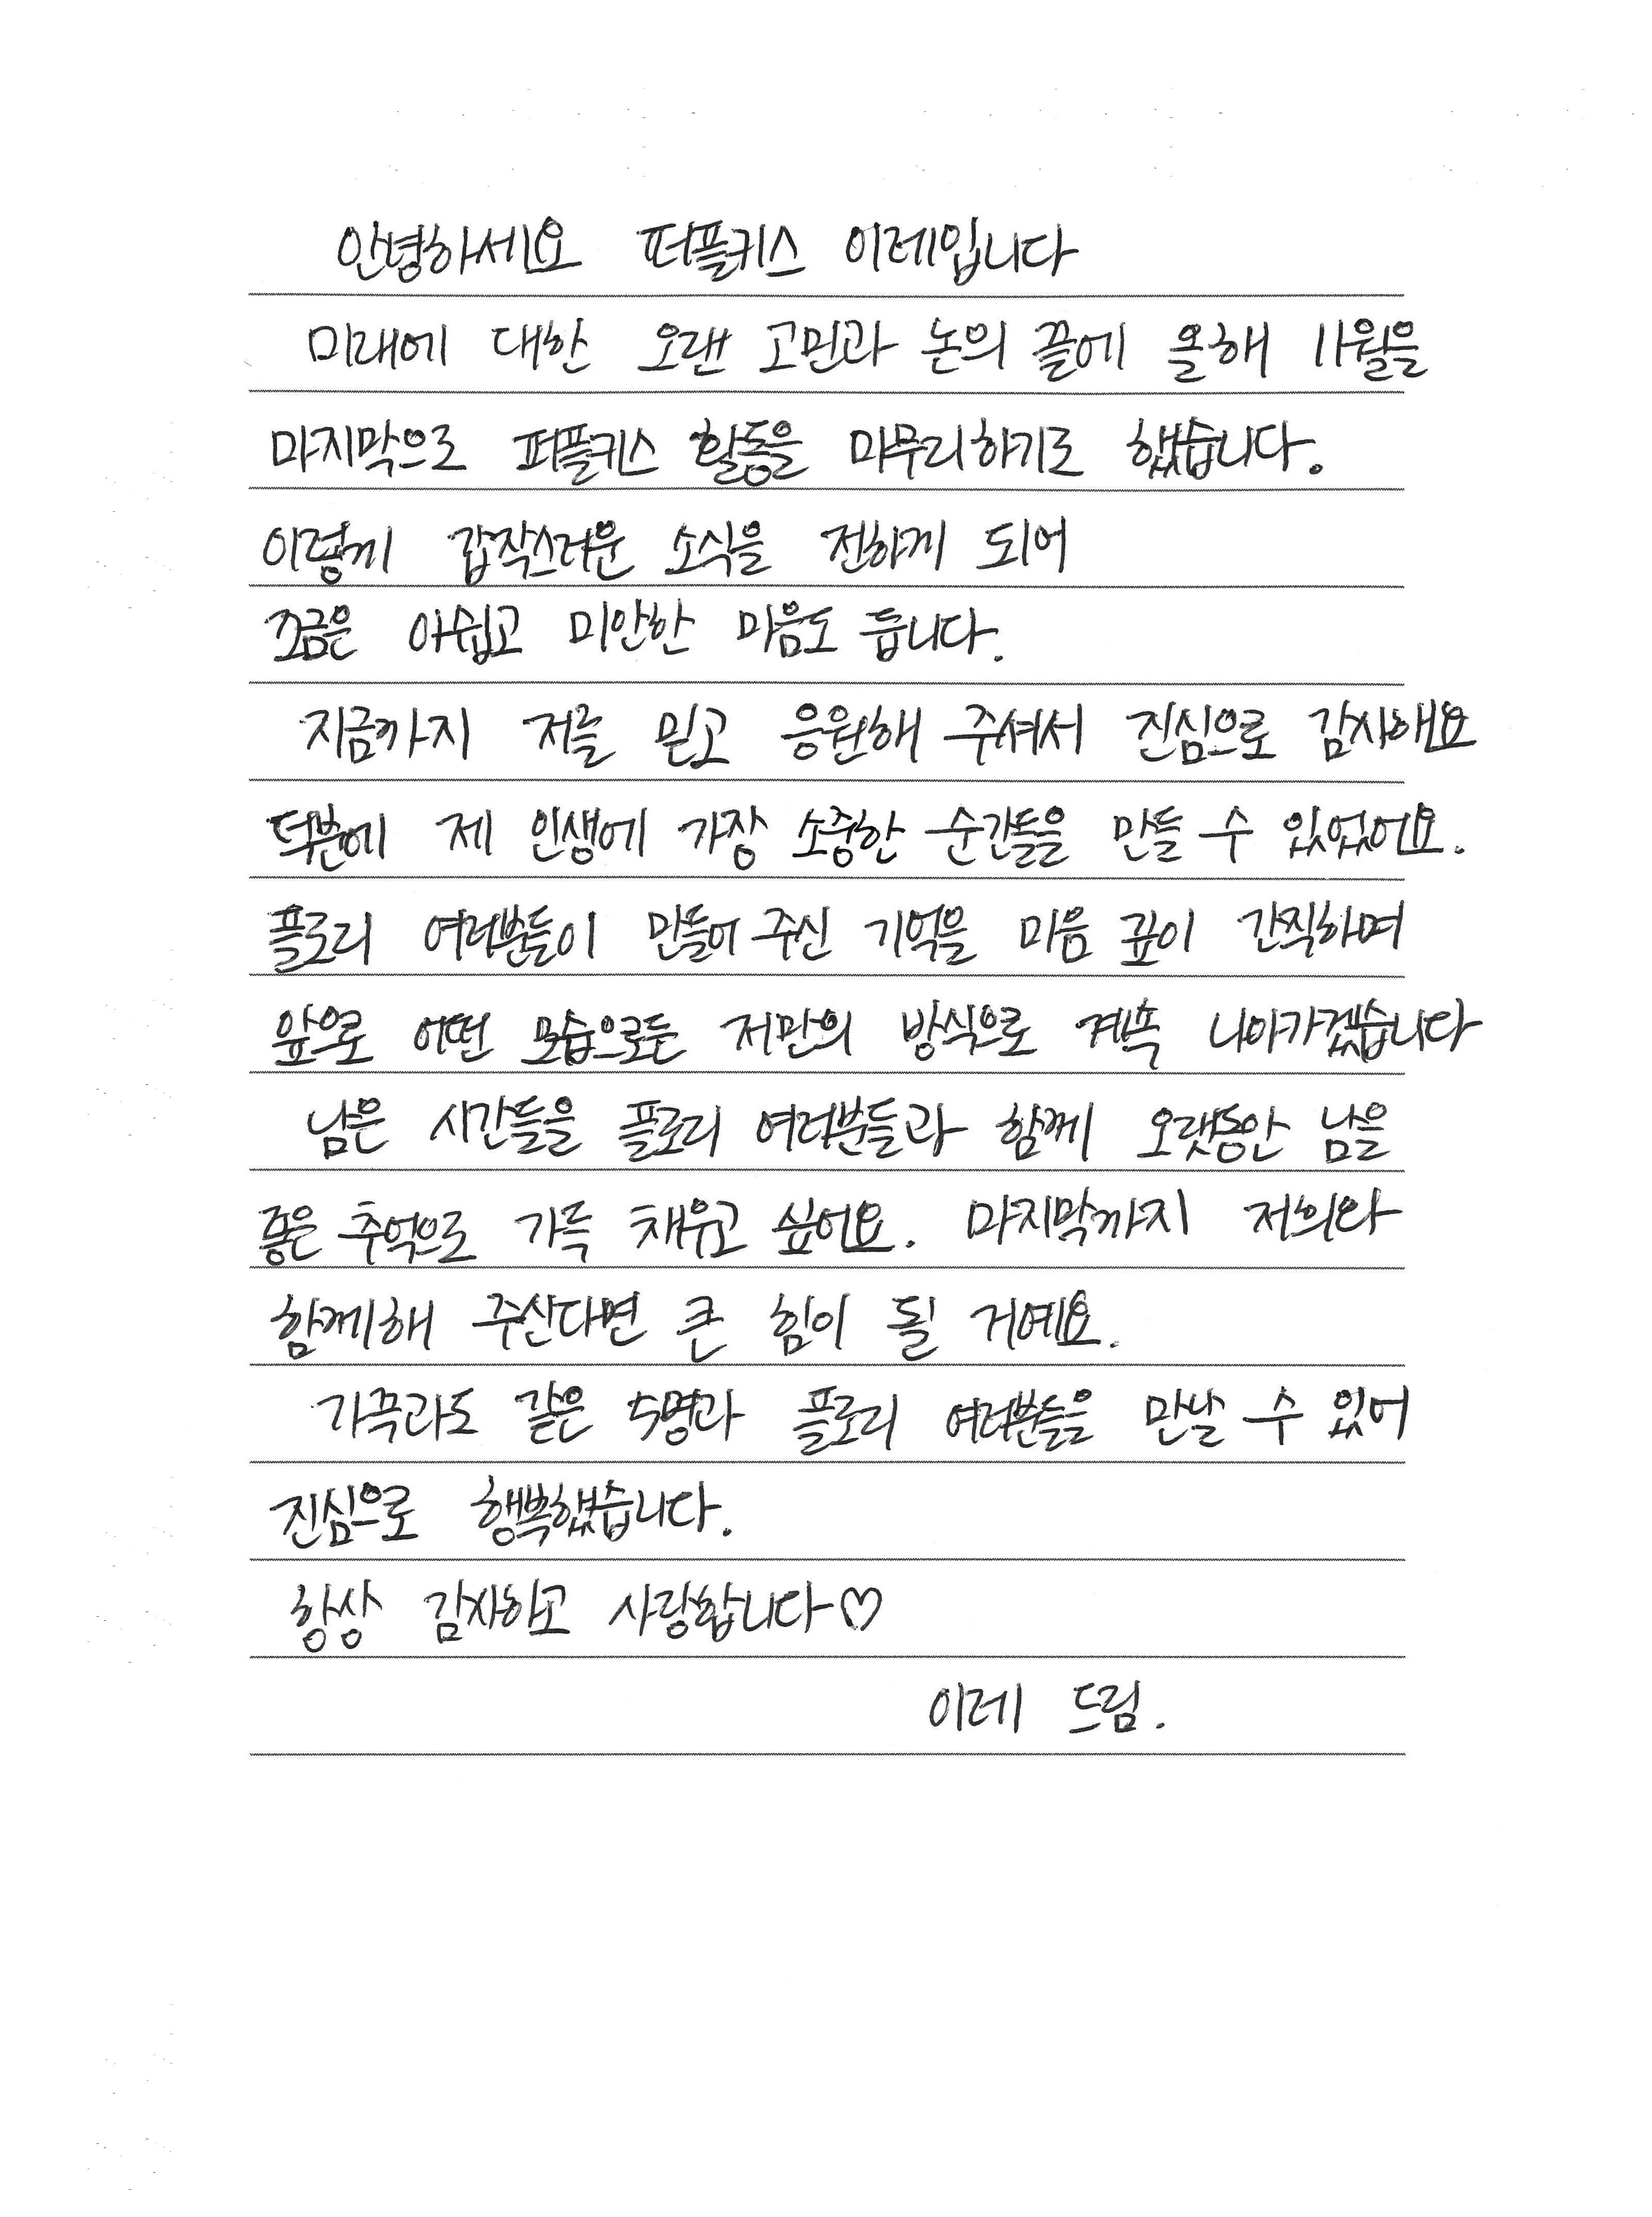 안녕하세요 퍼플키스 이레입니다
미래에 대한 오랜 고민과 논의 끝에 올해 11월을
마지막으로 퍼플키스 활동을 마무리하기로 했습니다.
이렇게 갑작스러운 소식을 전하게 되어
조금은 아쉽고 미안한 마음도 듭니다.
지금까지 저를 믿고 응원해 주셔서 진심으로 감사해요
덕분에 제 인생에 가장 소중한 순간들을 만들 수 있었어요.
플로리 여러분들이 만들어 주신 기억을 마음 깊이 간직하며
앞으로 어떤 모습으로든 저만의 방식으로 계속 나아가겠습니다
남은 시간들을 플로리 여러분들과 함께 오랫동안 남을
좋은 추억으로 가득 채우고 싶어요. 마지막까지 저희와
함께해 주신다면 큰 힘이 될 거예요.
가끔라도 같은 5명과 플로리 여러분들을 만날 수 있어
진심으로 행복했습니다.
항상 감사하고 사랑합니다♡
이레 드림.